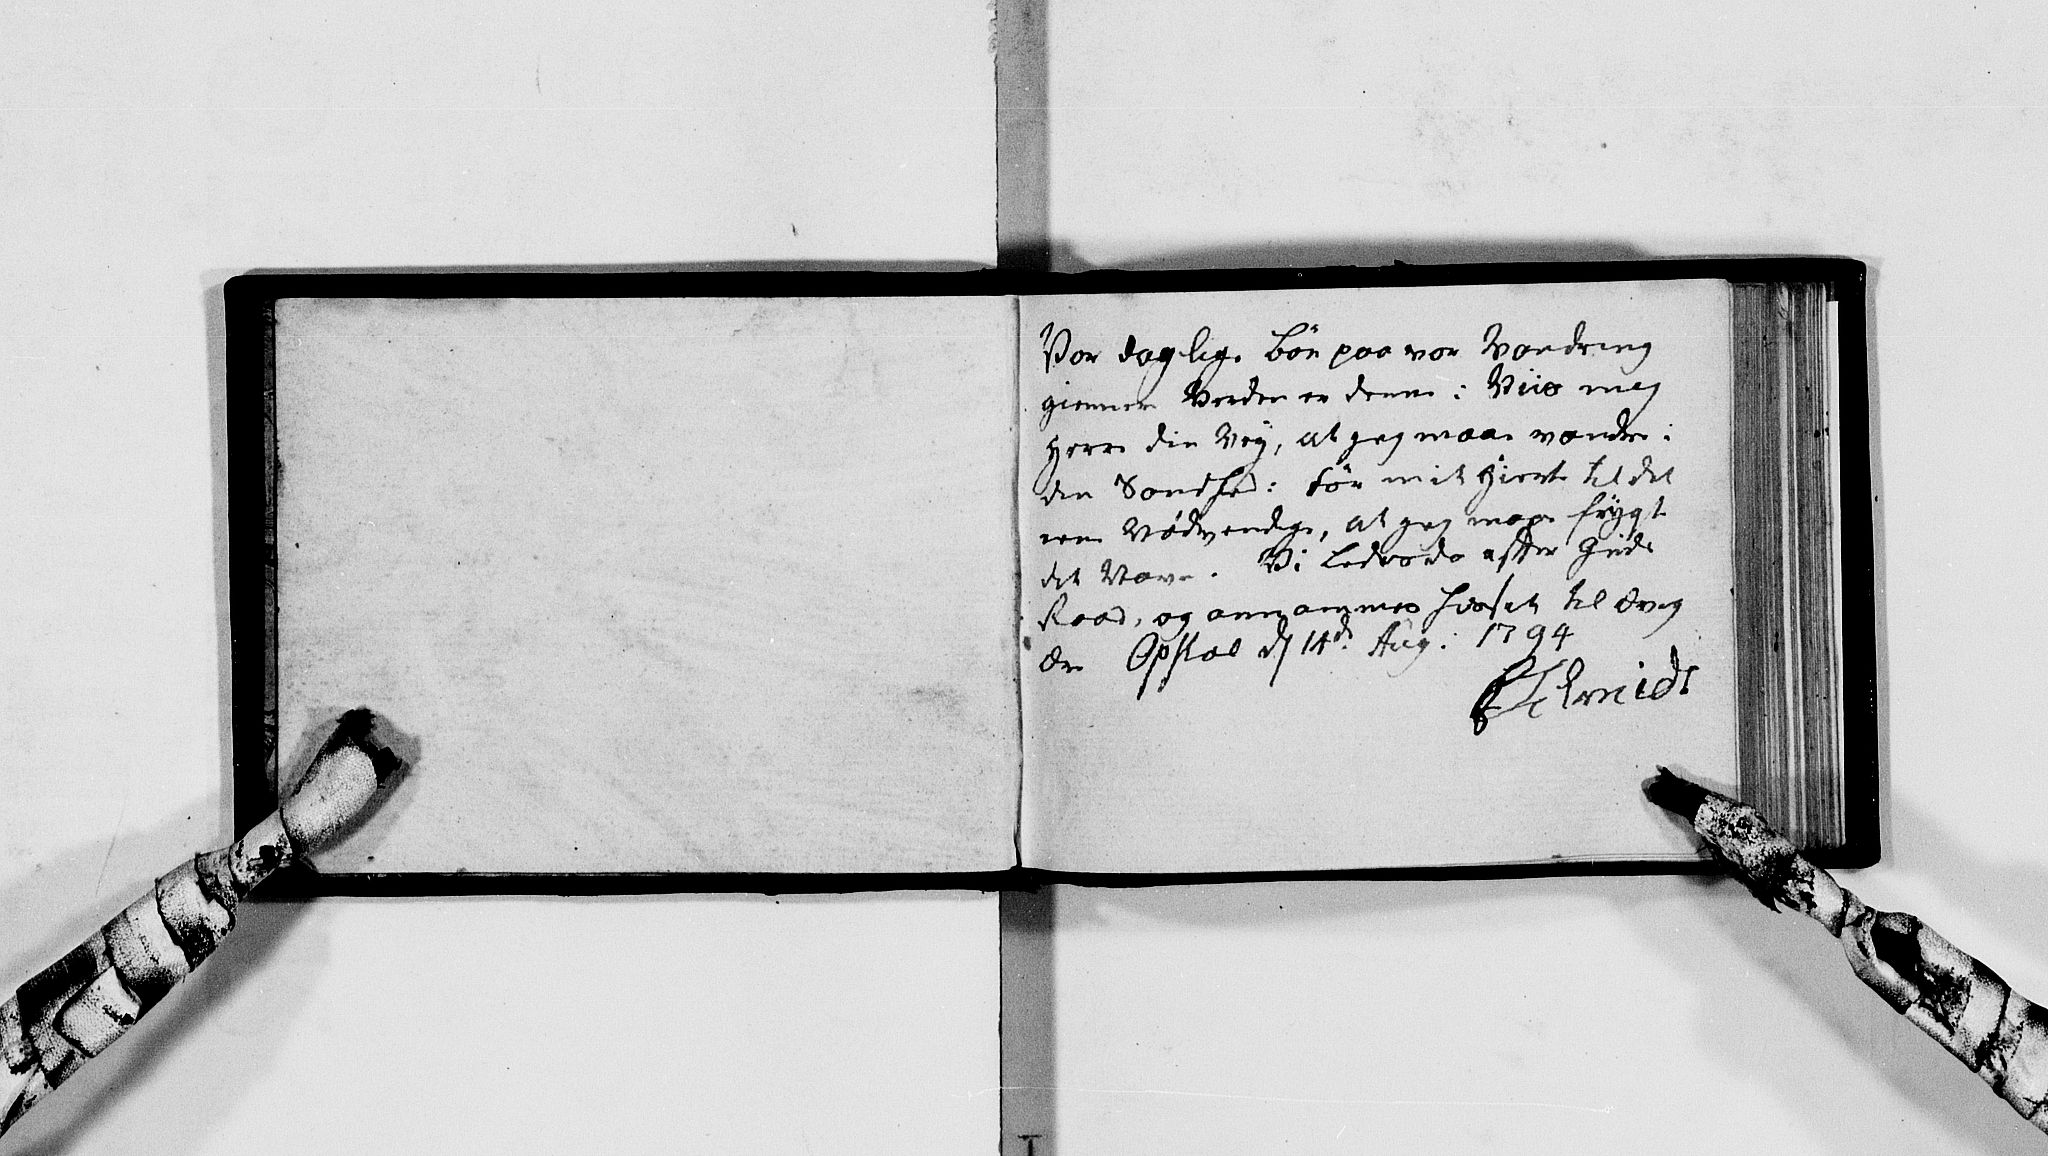 Vor daglige Bön paa vor Vandring
giennem Verden er denne: Viis mig
Herre din Vey, at jeg maae vandre i
din Sandhed: för mit Hierte til det
ene Nödvendige, at jeg maae frygte
dit Navn. Vi Ledsades efter Guds
Raad, og annammes hisset til ævig
Ære Opstal d 14de Aug: 1794
Schmidt